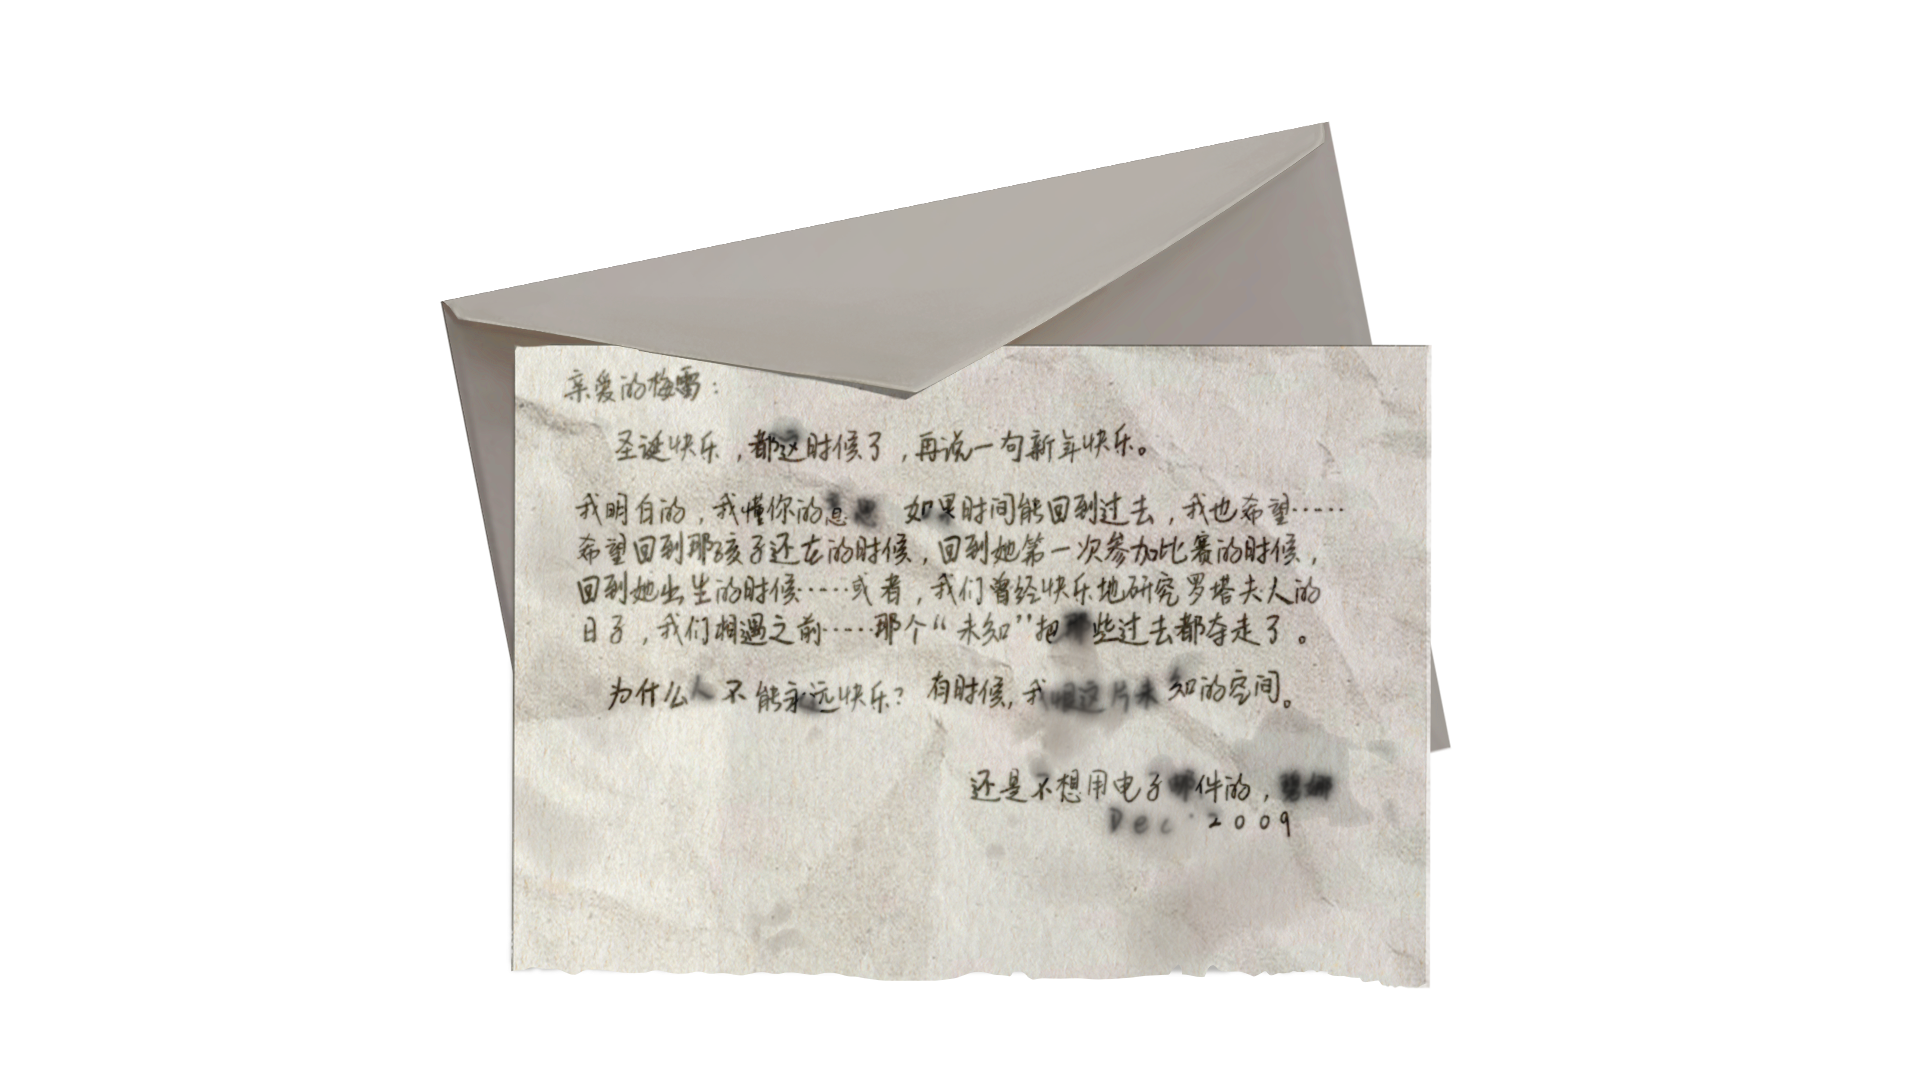 亲爱的梅雷：
圣诞快乐，都这时候了，再说一句新年快乐。
我明白的，我懂你的意思 如果时间能回到过去，我也希望……
希望回到那孩子还在的时候，回到她第一次参加比赛的时候，
回到她出生的时候……或者，我们曾经快乐地研究罗塔夫人的
日子，我们相遇之前……那个“未知”把那些过去都夺走了。
为什么人不能永远快乐？有时候，我恨这片未知的空间。
还是不想用电子邮件的，
Dec 2009